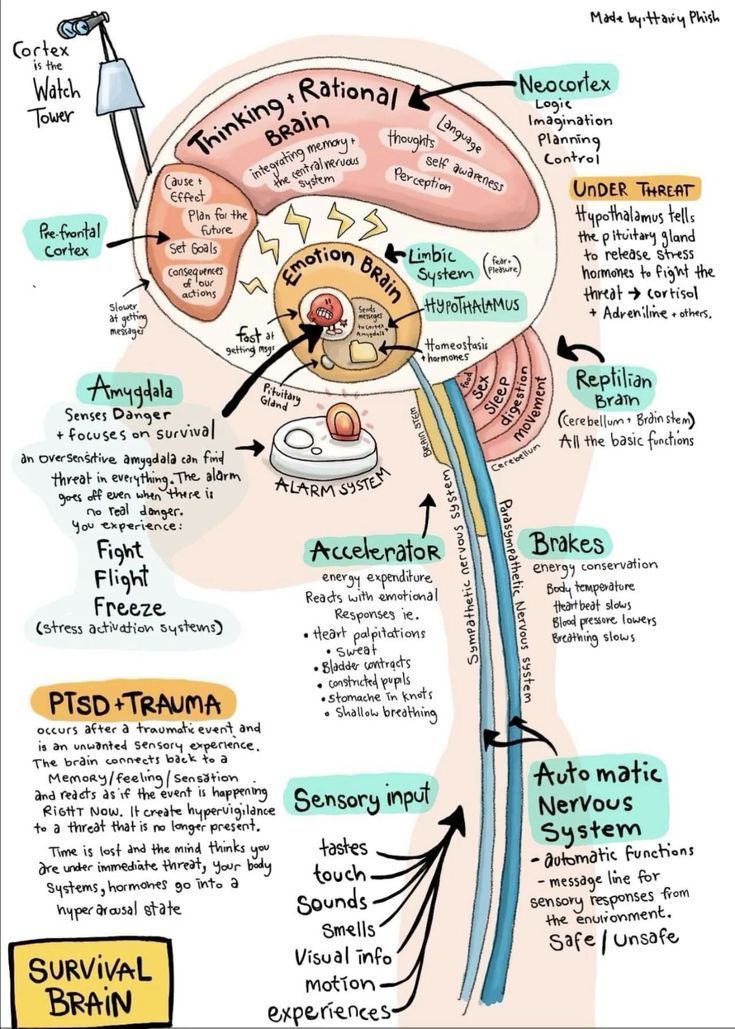 Made by: Hairy Phish
Cortex
is the
Watch
Tower
Thinking + Rational
Brain
integrating memory +
the central nervous
system
thoughts
Language
self awareness
Perception
Neocortex
Logic
Imagination
Planning
Control
Cause +
Effect
Plan for the
future
Set Goals
consequences
of our
actions
Pre-frontal
Cortex
Slower
at getting
messages
UNDER THREAT
Hypothalamus tells
the pituitary gland
to release stress
hormones to fight the
threat → cortisol
+ Adreniline + others.
Emotion Brain
Limbic
System
(fear +
Pleasure)
HYPOTHALAMUS
Sends
messages
to cortex
Amygdala
fast at
getting msgs
Homeostasis
+ hormones
Pituitary
Gland
Amygdala
Senses Danger
+ focuses on survival
an oversensitive amygdala can find
threat in everything. The alarm
goes off even when there is
no real danger.
you experience:
Fight
Flight
Freeze
(stress activation systems)
ALARM SYSTEM
BRAIN STEM
food
Sex
Sleep
digestion
movement
Cerebellum
Reptilian
Brain
(Cerebellum + Brain stem)
All the basic functions
Accelerator
energy expenditure
Reacts with emotional
Responses ie.
• Heart palpitations
• Sweat
• Bladder contracts
• constricted pupils
• stomache in knots
• Shallow breathing
Sympathetic nervous system
Parasympathetic Nervous system
Brakes
energy conservation
Body temperature
Heartbeat slows
Blood pressure lowers
Breathing slows
PTSD + TRAUMA
occurs after a traumatic event and
is an unwanted sensory experience.
The brain connects back to a
Memory/feeling/sensation
and reacts as if the event is happening
RIGHT NOW. It create hypervigilance
to a threat that is no longer present.
Time is lost and the mind thinks you
are under immediate threat, your body
systems, hormones go into a
hyper arousal state
Sensory input
tastes
touch
Sounds
Smells
Visual info
motion
experiences
Automatic
Nervous
System
- automatic functions
- message line for
sensory responses from
the environment.
Safe / Unsafe
SURVIVAL
BRAIN